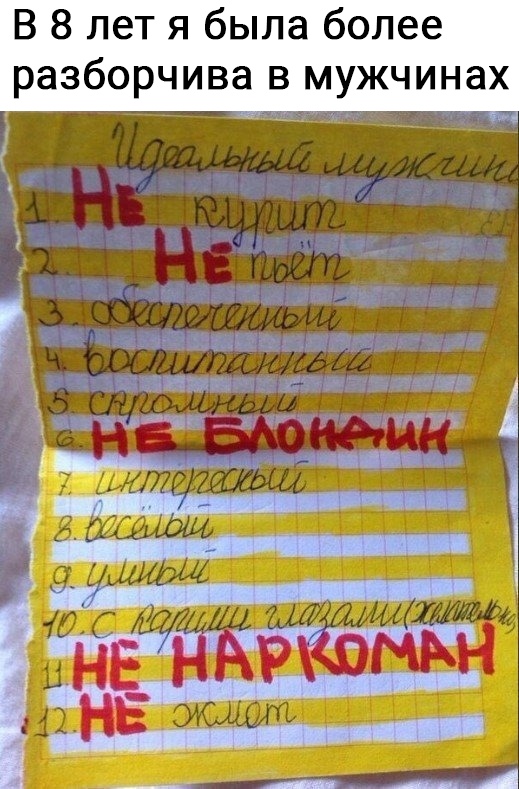 В 8 лет я была более
разборчива в мужчинах
Идеальный мужчина
1. Не курит
2. Не пьёт
3. обеспеченный
4. воспитанный
5. скромный
6. НЕ БЛОНДИН
7. интересный
8. весёлый
9. умный
10. с карими глазами (желательно)
11 НЕ НАРКОМАН
12. НЕ жмот